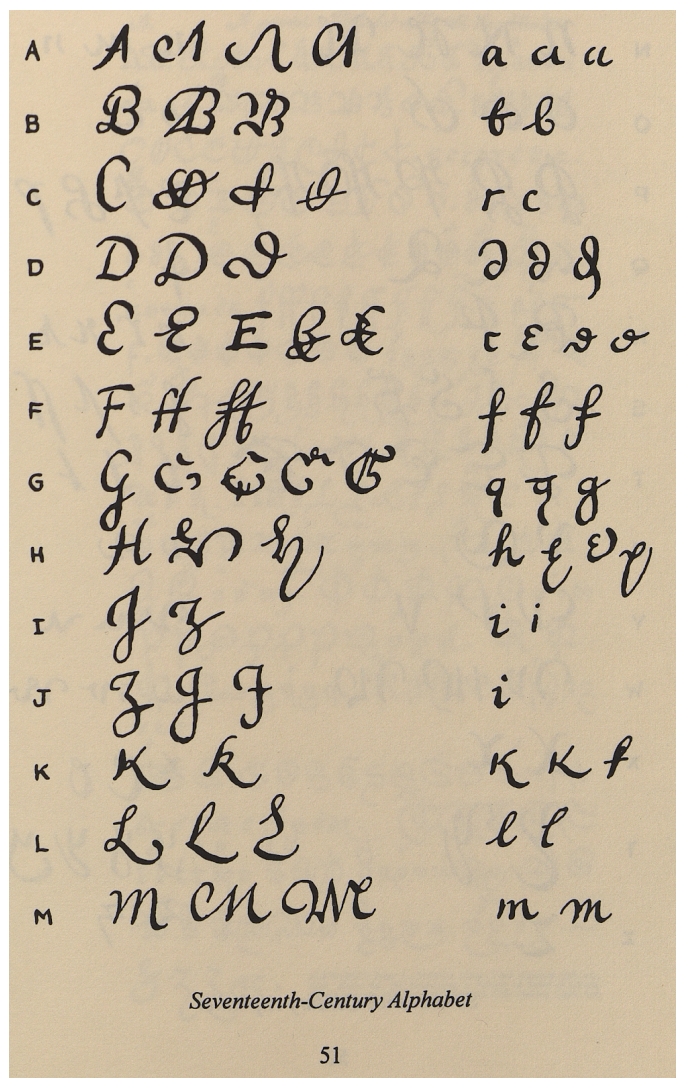 A A A A A a a a
B B B B b b
C C C C C r c
D D D D d d d
E E E E E E e e e e
F F F F f f f
G G G G G G g g g
H H H H h h h h
I I I i i
J J J J i
K K K K K K
L L L L l l
M M M M m m
Seventeenth-Century Alphabet
51